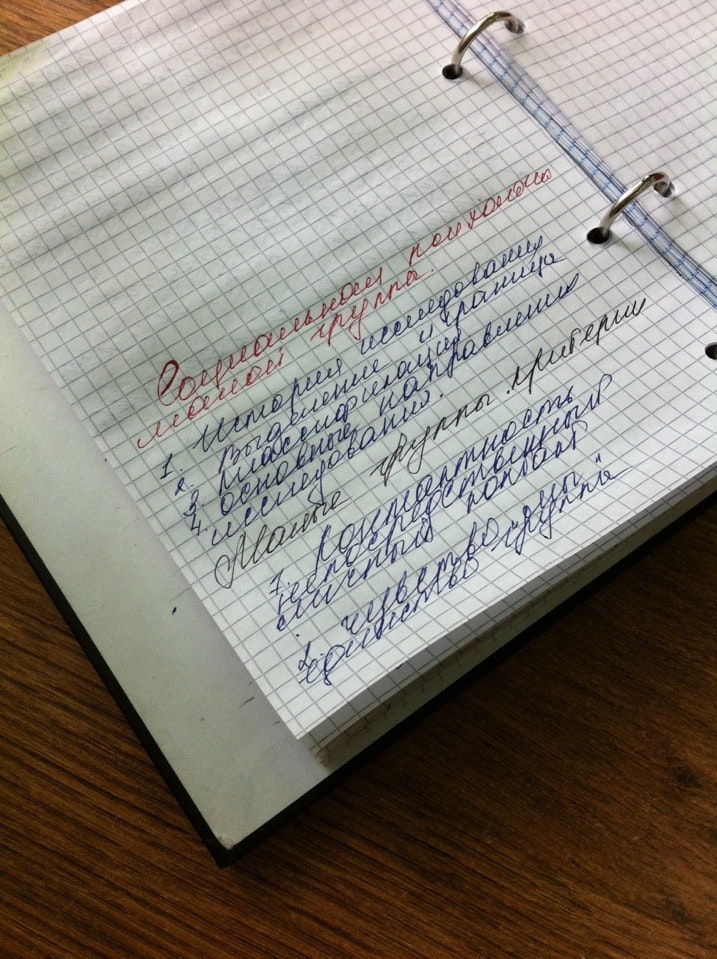 Социальная психология
малой группы.
1. История исследования
2. Выделение и границы
3. Классификация
4. основные направления
исследования.
Малые группы. критерии
1. Контактность
непосредственный
личный контакт
2. Чувство
единство группы